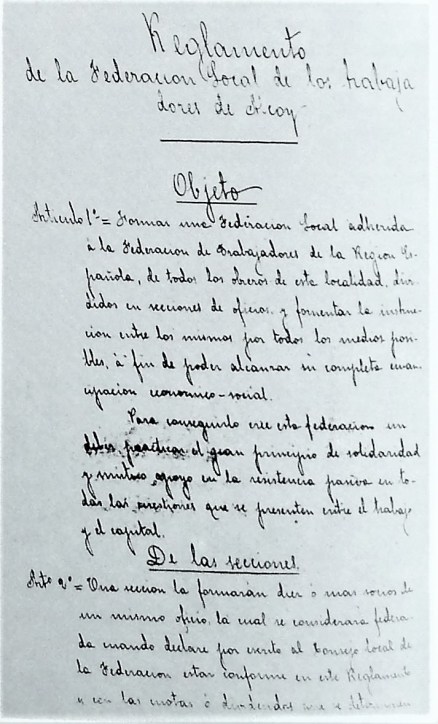 Reglamento
de la Federacion Local de los trabaja
dores de Alcoy
Objeto
Artículo 1º = Formar una Federacion Local adherida
á la Federacion de Trabajadores de la Region Es-
pañola, de todos los obreros de esta localidad, divi-
didos en secciones de oficios, y fomentar la instruc-
cion entre los mismos por todos los medios posi-
bles, á fin de poder alcanzar su completa eman-
cipacion economico-social.
Para conseguirlo cree esta federacion un
deber practicar el gran principio de solidaridad
y mutuo apoyo en la resistencia pasiva en to-
das las cuestiones que se presenten entre el trabajo
y el capital.
De las secciones.
Artº 2º = Una seccion la formarán diez ó mas socios de
un mismo oficio, la cual se considerará federa-
da cuando declare por escrito al Consejo local de
la Federacion estar conforme en este Reglamento
y con las cuotas ó dividendos que se determinan